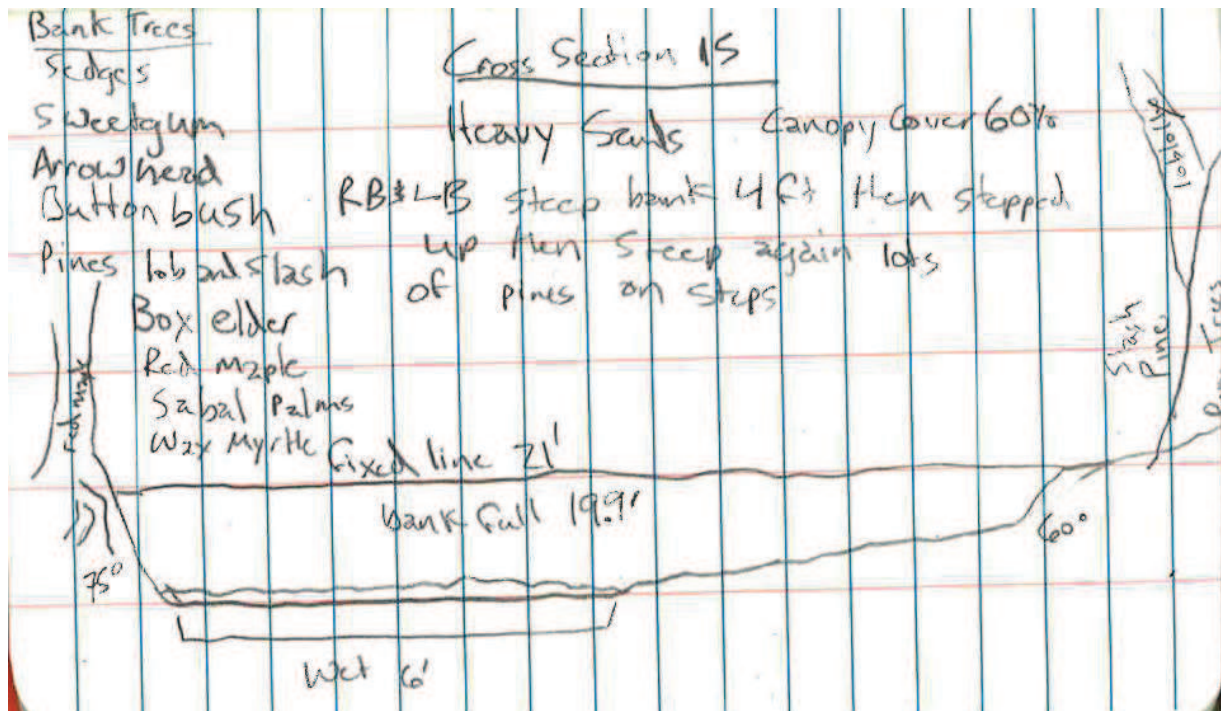 Bank Trees
Sedges
Sweetgum
Arrowhead
Button bush
Pines lob and slash
Box elder
Red maple
Sabal Palms
Wax Myrtle
Cross Section 15
Heavy Sands Canopy Cover 60%
RB & LB steep bank 4 ft then stepped
up then steep again lots
of pines on steps
red maple
Loblolly
Slash
Pine
Trees
Fixed line 21'
bank full 19.9'
75°
60°
Wet 6'